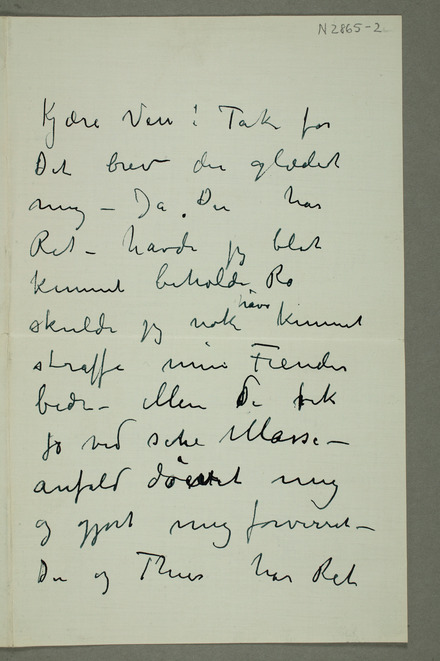 N 2865-2
Kjære Ven! Tak for
Det brev der glædet
mig – Ja. Du har
Ret – havde jeg blot
kunnet beholde Ro
skulde jeg nok have kunnet
straffe mine Fiender
bedre – Men De fik
jo ved sine Masse-
anfald døvet mig
og gjort mig forvirret –
Du og Thiis har Ret